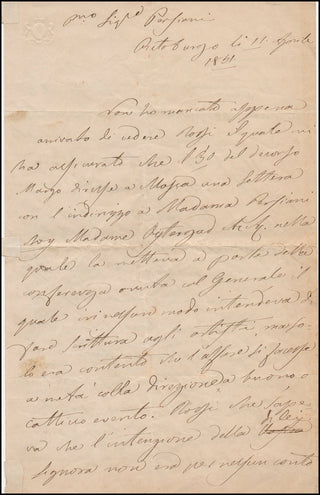 Sig.e Persiani
Pietoburgo li 11 Aprile
1841.
Non ho mancato appena
arrivato di vedere Rossi il quale mi
ha assicurato che l'30 del decorso
Marzo diresse a una lettera
con l'indirizzo a Madama Persiani
Madame nella
quale la metteva a parte della
conferenza avuta col Generale il
quale in nessun modo intendeva di
fare scrittura agli artisti, ma so-
lo era contento che l'affare si facesse
a metà colla Direzione a buono o
cattivo evento. Rossi che sape-
va che l'intenzione della di Lei
Signora non era per nessun conto